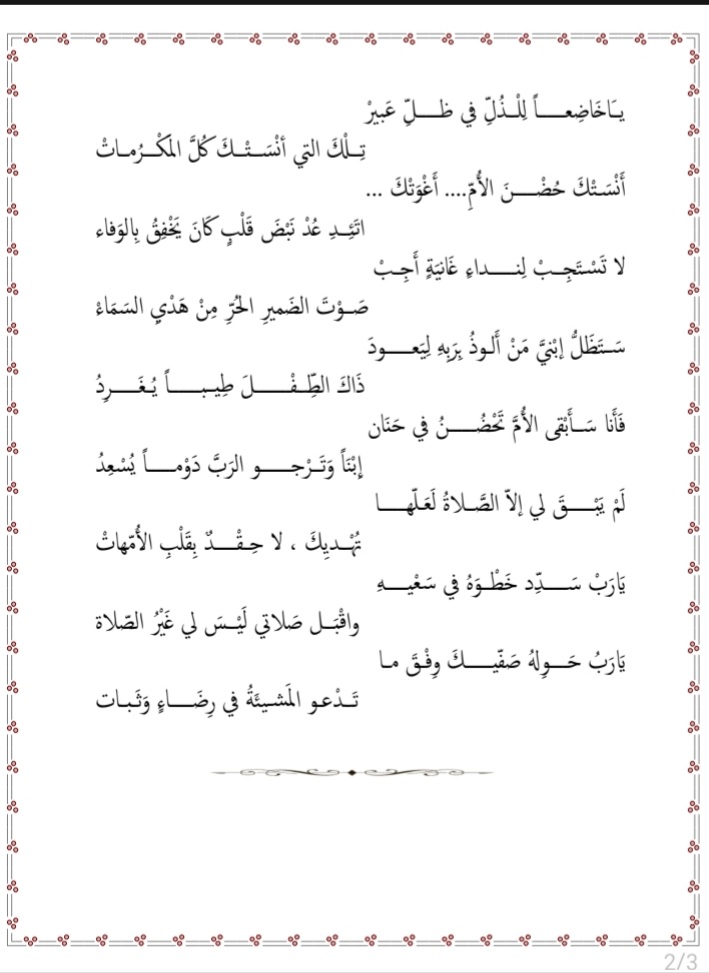 يَاخَاضِعاً لِلْذُلِّ في ظلِّ عَبيرْ
تِلْكَ التي أنْسَتْكَ كُلَّ المَكْرُماتْ
أَنْسَتْكَ حُضْنَ الأُمّ.... أَغْوَتْكَ ...
اتّئِدِ عُدْ نَبْضَ قَلْبٍ كَانَ يَخْفِقُ بالوَفاء
لا تَسْتَجِبْ لِنداءِ غَانيَةٍ أَجِبْ
صَوْتَ الضَميرِ الحُرِّ مِنْ هَدْيِ السَمَاءْ
سَتَظَلُّ إبْنيَّ مَنْ أَلوذُ بِرَبِهِ لِيَعودَ
ذَاكَ الطِّفْلَ طيباً يُغَرِدُ
فَأَنا سَأَبْقى الأُمَّ تَحْضُنُ في حَنَان
إبْنَاً وَتَرْجو الرَبَّ دَوْماً يُسْعِدُ
لَمْ يَبْقَ لي إلاّ الصَّلاةُ لَعَلّها
تُهْديكَ ، لا حِقْدٌ بِقَلْبِ الأُمّهاتْ
يَارَبْ سَدِّد خَطْوَهُ في سَعْيهِ
واقْبَل صَلاتي لَيْسَ لي غَيْرُ الصّلاة
يَارَبُ حَولهُ صَفيّكَ وِفْقَ ما
تَدْعو المَشيئَةُ في رِضَاءٍ وَثَبات
2/3